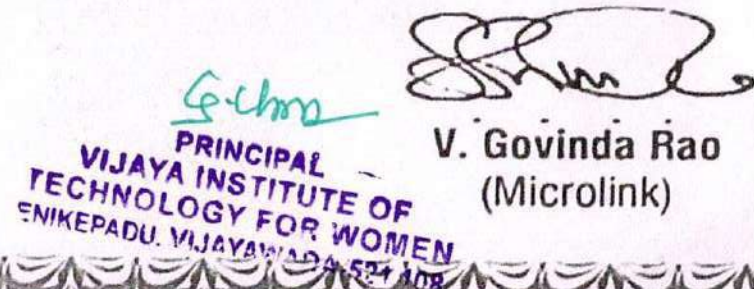 PRINCIPAL
VIJAYA INSTITUTE OF
TECHNOLOGY FOR WOMEN
ENIKEPADU, VIJAYAWADA-521 108
V. Govinda Rao
(Microlink)